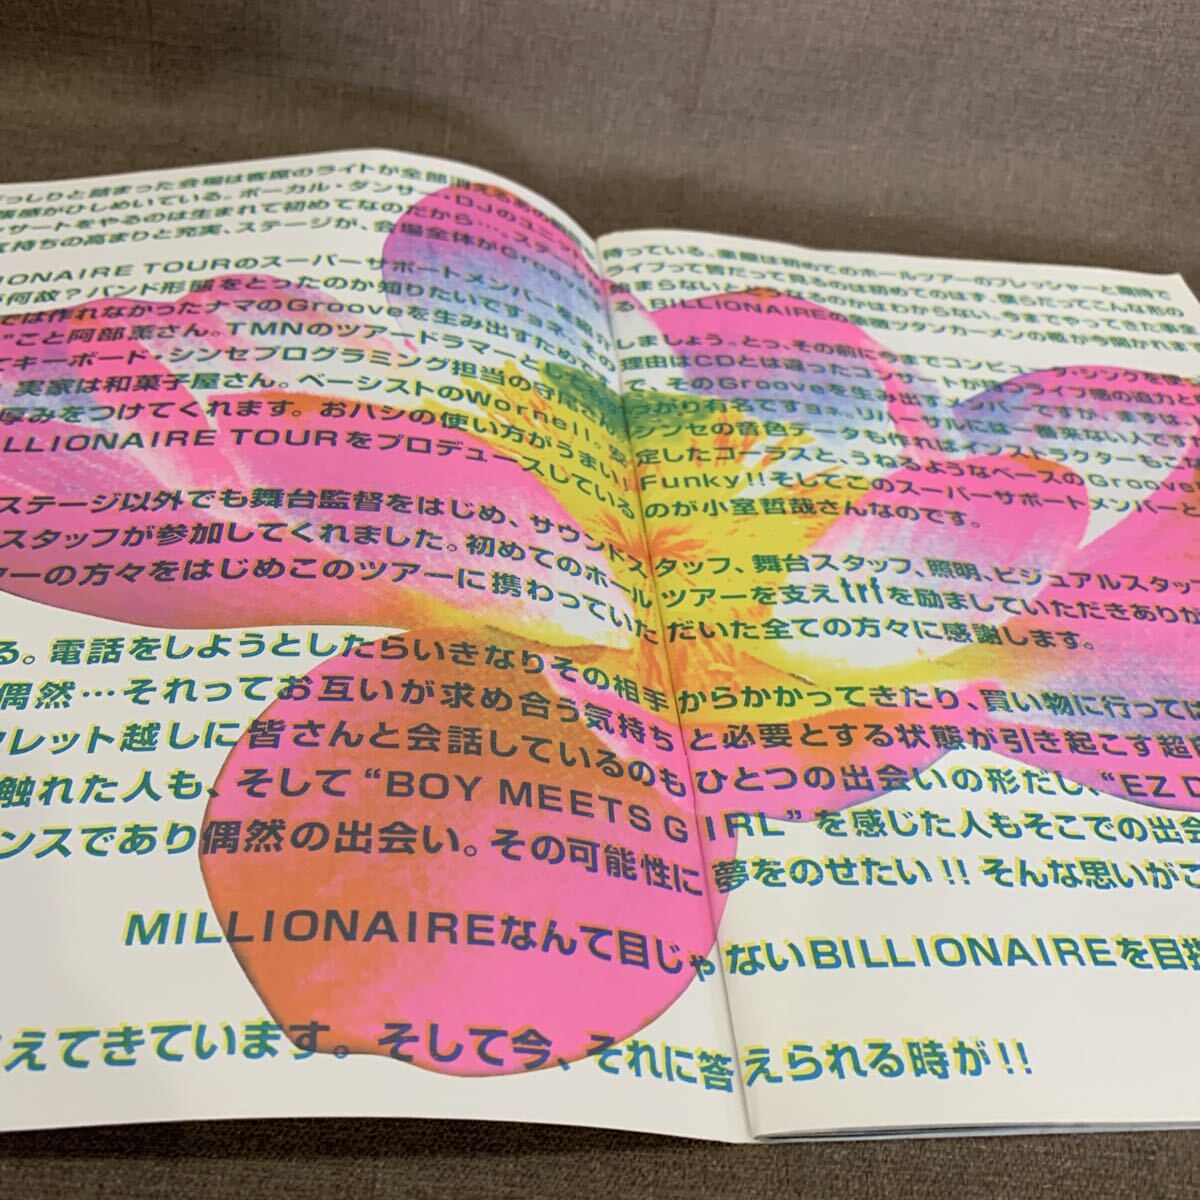 っしりと詰まった会場は客席のライトが全部消えるあの
張感がひしめいている。ボーカル・ダンサー・DJのユニッ 待っている、楽屋は初めてのホールツアーのプレッシャーと期待で
サートをやるのは生まれて初めてなのだから…。ステー ライブって皆だって見るのは初めてのはず、僕らだってこんな形の
気持ちの高まりと充実、ステージが、会場全体がGroove 始まらないとどうなるのかはわからない。今までやってきた事全
IONAIRE TOURのスーパーサポートメンバーを紹 る BILLIONAIREの金融ツタンカーメンの扉が今開かれます
何故?バンド形態をとったのか知りたいですョネ、その しましょう。とっ、その前に今までコンピュータ・シンクを使
では作れなかったナマのGrooveを生み出すためで 理由はCDとは違ったコンサートが持つライブ感の迫力と
"こと阿部薫さん。TMNのツアードラマーとして で、そのGrooveを生み出すメンバーですが、まずは
キーボード・シンセプログラミング担当の守尾さん つかり有名ですョネ。リハーサルには一番来ない人です
実家は和菓子屋さん。ベーシストのWornell。安 シンセの音色データも作ればインストラクターもこな
厚みをつけてくれます。おハシの使い方がうまい! 定したコーラスと、うねるようなベースのGroove
LLIONAIRE TOURをプロデュースしている Funky!!そしてこのスーパーサポートメンバーと
のが小室哲哉さんなのです。
ステージ以外でも舞台監督をはじめ、サウンドスタッフ、舞台スタッフ、照明、ビジュアルスタッ
スタッフが参加してくれました。初めてのホールツアーを支えtrfを励ましていただきありが
ァーの方々をはじめこのツアーに携わっていただいた全ての方々に感謝します。
る。電話をしようとしたらいきなりその相手からかかってきたり、買い物に行っては
偶然…それってお互いが求め合う気持ちと必要とする状態が引き起こす超
レット越しに皆さんと会話しているのもひとつの出会いの形だし、"EZ D
触れた人も、そして"BOY MEETS GIRL"を感じた人もそこでの出会
ンスであり偶然の出会い。その可能性に夢をのせたい!!そんな思いがこ
MILLIONAIREなんて目じゃないBILLIONAIREを目指
えてきています。そして今、それに答えられる時が!!